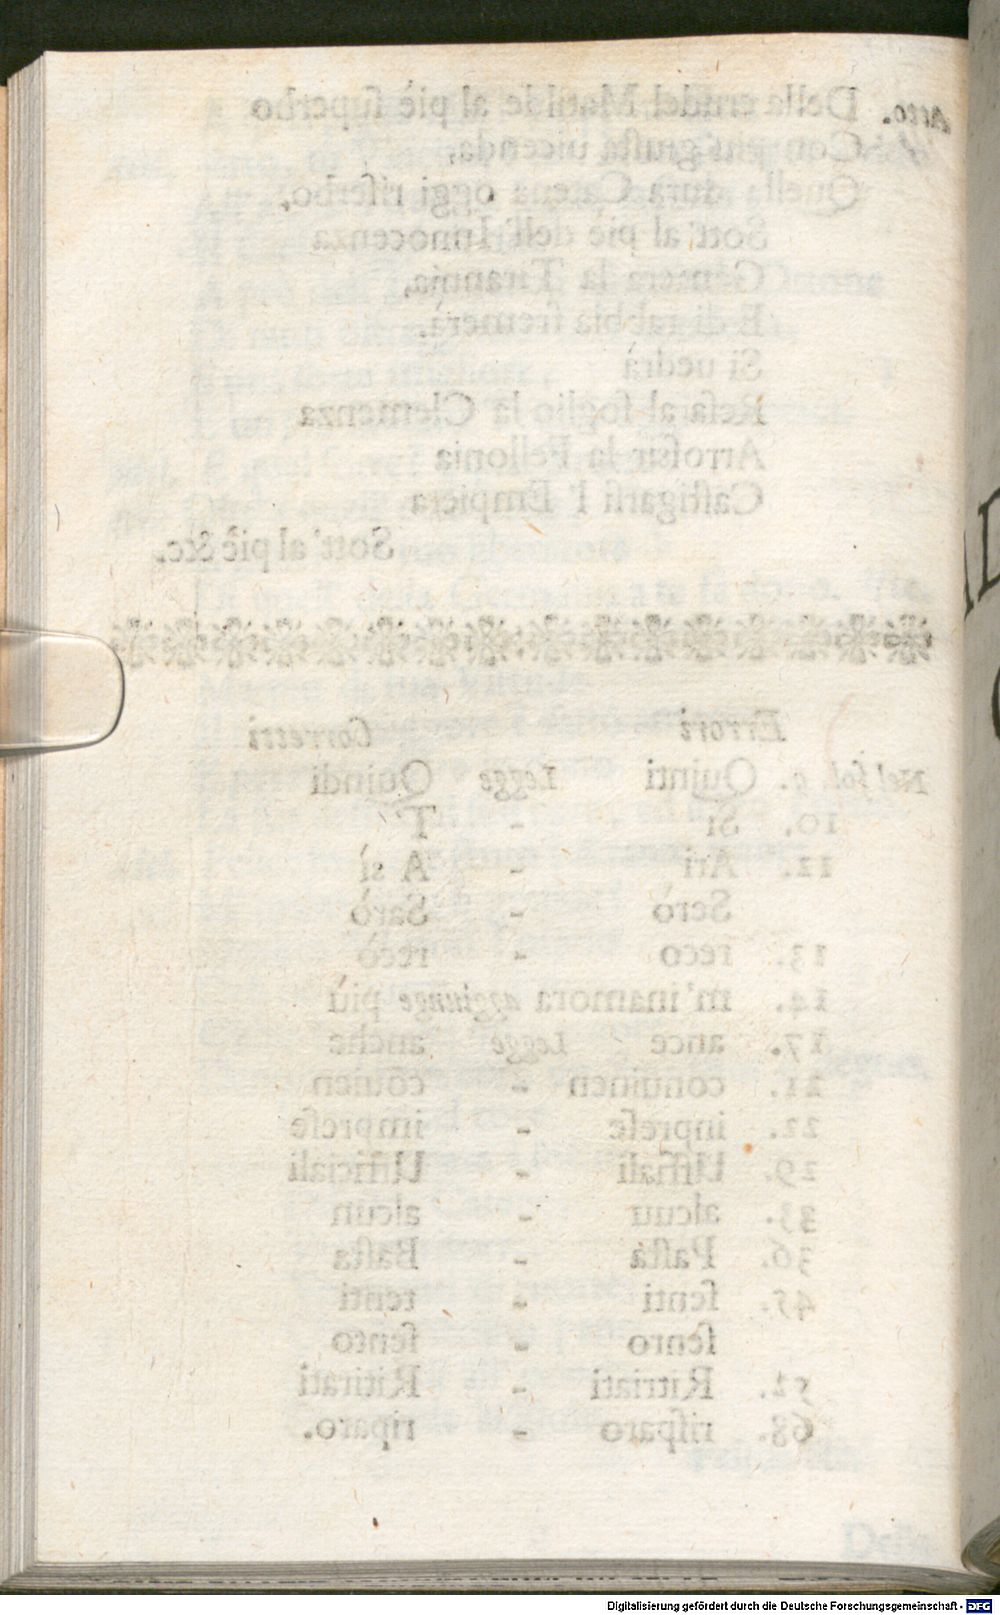 Della crudel Matilde al piè ſuperbo
Con piu giuſta uicenda,
Quella dura Catena oggi riſerbo,
Sott' al piè dell' Innocenza
Gemera la Tirannia,
E di rabbia fremerà.
Si uedrà
Reſa al ſoglio la Clemenza
Arroſſir la Fellonia
Caſtigarſi l' Empietà
Sott' al piè &c.
Errori Corretti
Nel fol. 9. Quinti Legge Quindi
10. Si - T'
12. Ati - A sì
Serò - Sarò
13. reco - recò
14. m'inamora aggiunge più
17. ance Legge anche
21. conuinen - cõuien
22. inpreſe - impreſe
29. Uffiali - Ufficiali
33. alcuu - alcun
36. Paſta - Baſta
45. ſenti - tenti
ſenro - ſento
52. Ritriati - Ritirati
68. riſparo - riparo.
Digitalisierung gefördert durch die Deutsche Forschungsgemeinschaft - DFG